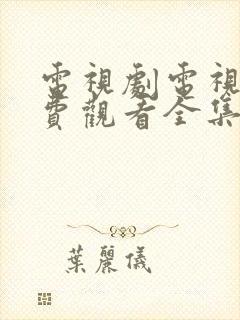 電視劇電視
費觀看全集
葉麗儀